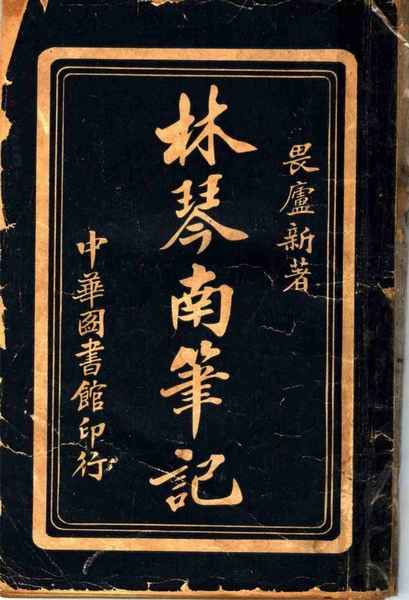 畏廬新著
林琴南筆記
中華圖書館印行